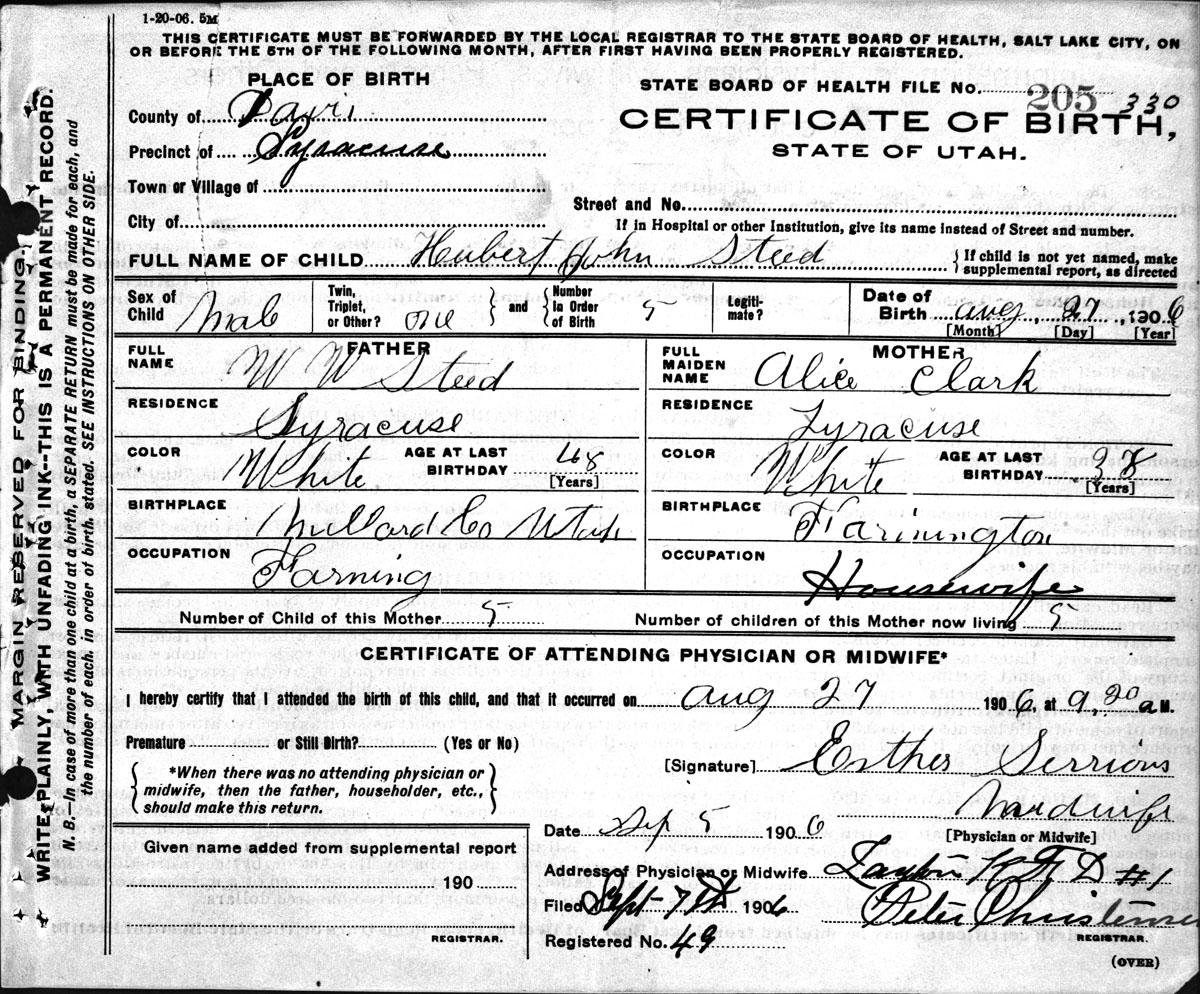 1-20-06. 5M
THIS CERTIFICATE MUST BE FORWARDED BY THE LOCAL REGISTRAR TO THE STATE BOARD OF HEALTH, SALT LAKE CITY, ON
OR BEFORE THE 5TH OF THE FOLLOWING MONTH, AFTER FIRST HAVING BEEN PROPERLY REGISTERED.
MARGIN RESERVED FOR BINDING.
WRITE PLAINLY, WITH UNFADING INK--THIS IS A PERMANENT RECORD.
N. B.—In case of more than one child at a birth, a SEPARATE RETURN must be made for each, and
the number of each, in order of birth, stated. SEE INSTRUCTIONS ON OTHER SIDE.
PLACE OF BIRTH
County of Davis
Precinct of Syracuse
Town or Village of
City of
STATE BOARD OF HEALTH FILE No. 205 330
CERTIFICATE OF BIRTH,
STATE OF UTAH.
Street and No.
If in Hospital or other Institution, give its name instead of Street and number.
FULL NAME OF CHILD Hubert John Steed
If child is not yet named, make
supplemental report, as directed
Sex of Child Male
Twin, Triplet, or Other? one
and
Number in Order of Birth 5
Legitimate?
Date of Birth Aug, 27, 1906
[Month] [Day] [Year]
FATHER
FULL NAME W W Steed
RESIDENCE Syracuse
COLOR White
AGE AT LAST BIRTHDAY 48
[Years]
BIRTHPLACE Millard Co Utah
OCCUPATION Farming
MOTHER
FULL MAIDEN NAME Alice Clark
RESIDENCE Syracuse
COLOR White
AGE AT LAST BIRTHDAY 38
[Years]
BIRTHPLACE Farmington
OCCUPATION Housewife
Number of Child of this Mother 5
Number of children of this Mother now living 5
CERTIFICATE OF ATTENDING PHYSICIAN OR MIDWIFE*
I hereby certify that I attended the birth of this child, and that it occurred on Aug 27 1906, at 9,20 a M.
Premature or Still Birth? (Yes or No)
*When there was no attending physician or
midwife, then the father, householder, etc.,
should make this return.
[Signature] Esther
Midwife
[Physician or Midwife]
Date Sep 5 1906
Address of Physician or Midwife Layton R F D #1
Filed Sept 7th 1906 Peter Christensen
REGISTRAR.
Registered No. 49
Given name added from supplemental report
190
REGISTRAR.
(OVER)